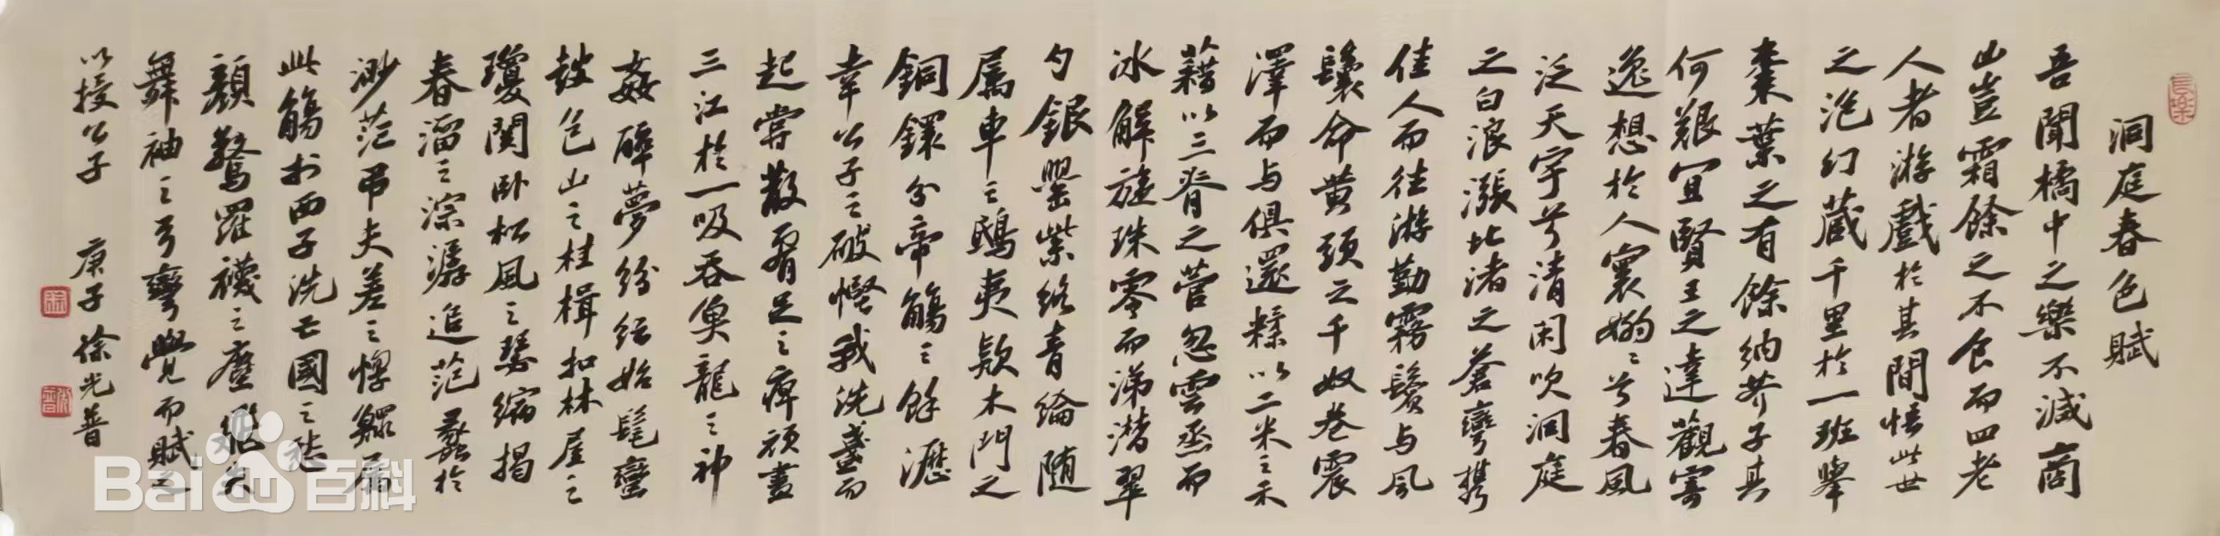 洞庭春色賦
吾聞橘中之樂不減商
山豈霜餘之不食而四老
人者游戲於其間悟此世
之泡幻藏千里於一班舉
棗葉之有餘納芥子其
何艱宜賢王之達觀寄
逸想於人寰嫋〻兮春風
泛天宇兮清閑吹洞庭
之白浪漲北渚之蒼彎攜
佳人而往游勤霧鬢與風
鬟命黃頭之千奴卷震
澤而與俱還糅以二米之禾
藉以三脊之菅忽雲烝而
冰解旋珠零而涕潸翠
勺銀罌紫絡青綸隨
属車之鴟夷款木門之
銅鐶分帝觴之餘瀝
幸公子之破慳我洗盞而
起嘗散腰足之痺頑盡
三江於一吸吞魚龍之神
姦醉夢紛紜始髦蠻
鼓包山之桂楫扣林屋之
瓊關卧松風之瑟縮揭
春溜之淙潺追范蠡於
渺茫弔夫差之惸鰥属
此觴於西子洗亡國之愁
顏驚羅襪之塵飛失
舞袖之弓彎覺而賦之
以授公子 庚子徐光普
長樂
徐
Baidu百科